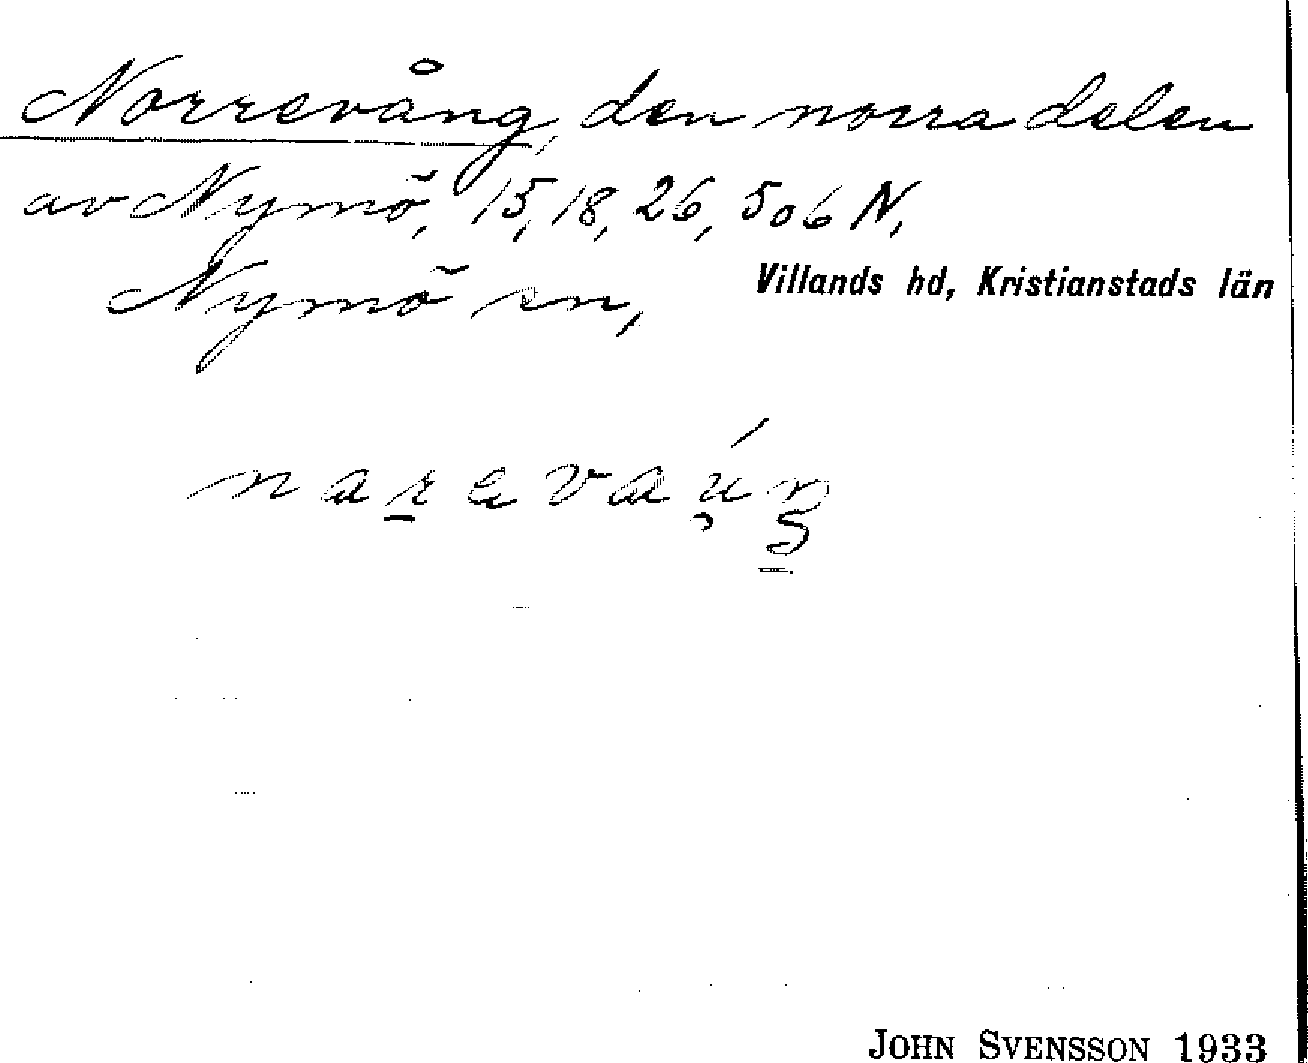 Norrevång, den norra delen
av Nymö, 15, 18, 26, 506 N,
Nymö sn,
Villands hd, Kristianstads län
JOHN SVENSSON 1933